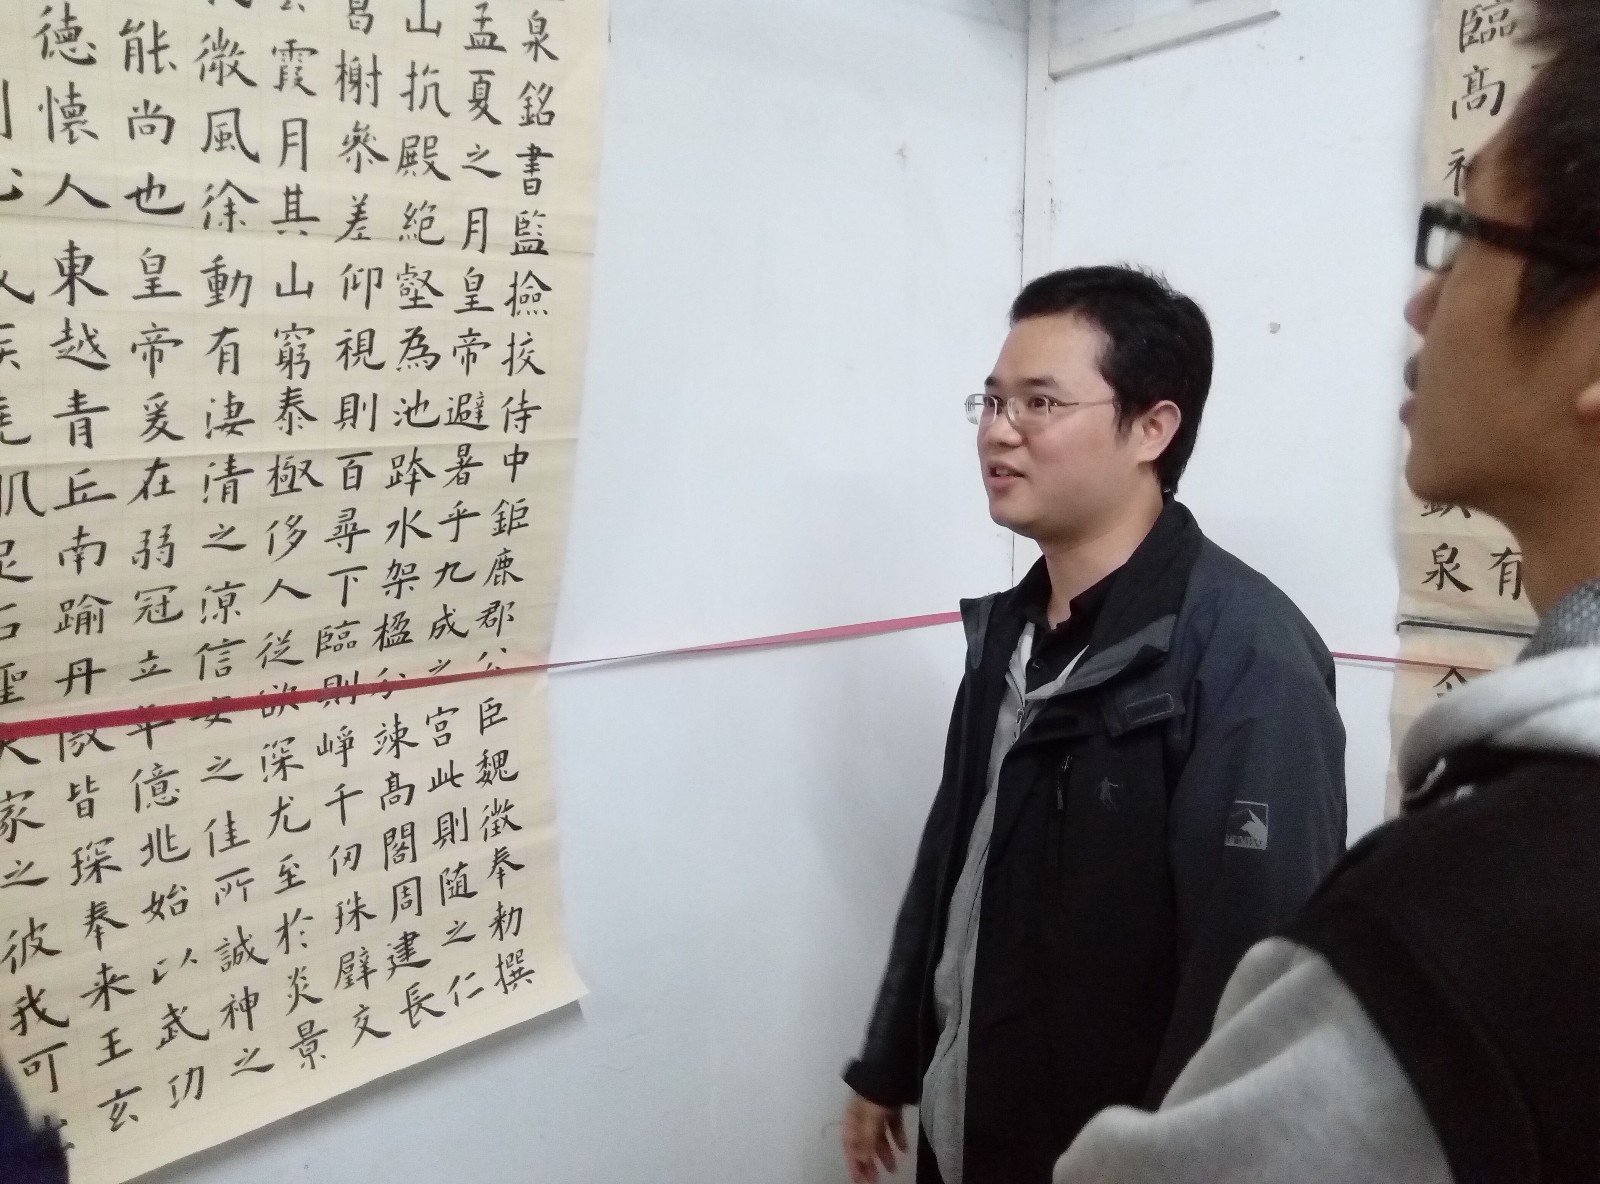 臨高
有
泉
泉銘書監撿挍侍中鉅鹿郡公臣魏徵奉勅撰
孟夏之月皇帝避暑乎九成之宮此則随之仁
山抗殿絶壑為池跨水架楹分竦高閣周建長
榭叅差仰視則百尋下臨則崢千仞珠璧交
霞月其山窮泰極侈人従欲深尤至於炎景
微風徐動有淒清之凉信安之佳所誠神之
能尚也皇帝爰在弱冠立年億兆始以武功
德懷人東越青丘南踰丹皆琛奉来王玄
肌足石聖家之彼我可